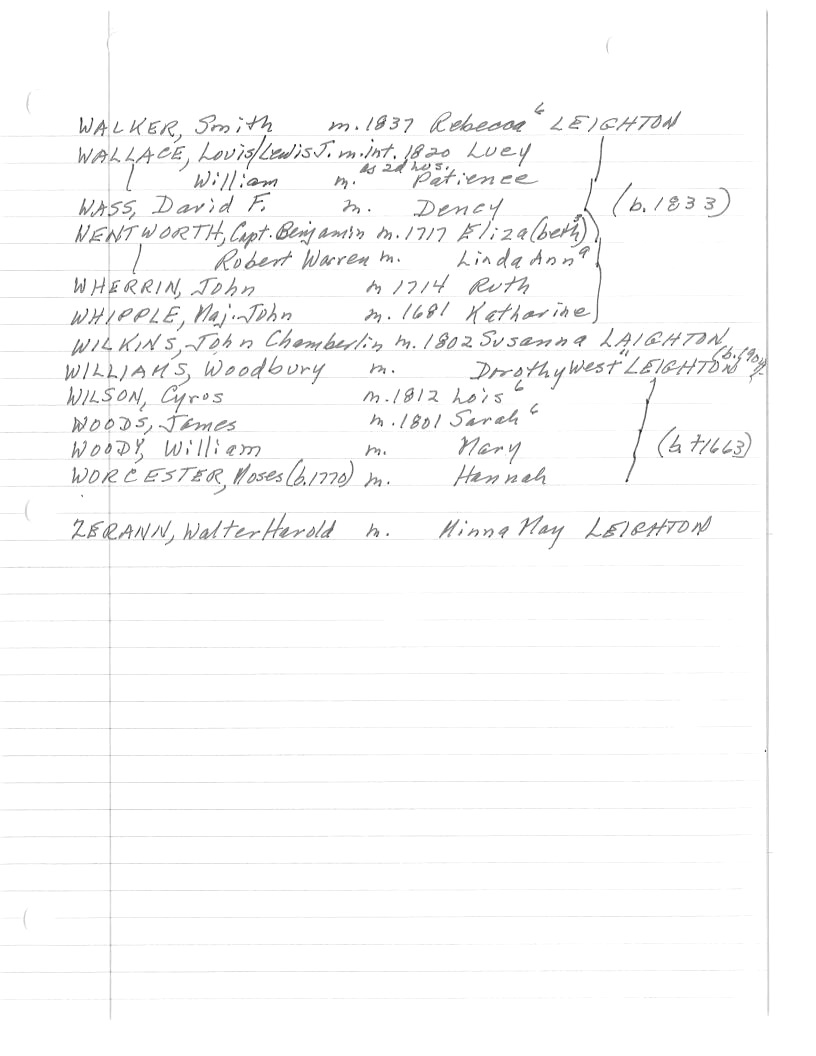 WALKER, Smith m. 1837 Rebecca⁶ LEIGHTON
WALLACE, Louis/Lewis J. m.int. 1820 Lucy
William m. as 2d hus. Patience
WASS, David F. m. Dency (b. 1833)
WENTWORTH, Capt. Benjamin m. 1717 Eliza(beth³)
Robert Warren m. Linda Ann⁹
WHERRIN, John m 1714 Ruth
WHIPPLE, Maj. John m. 1681 Katharine
WILKINS, John Chamberlin m. 1802 Susanna LAIGHTON
WILLIAMS, Woodbury m. Dorothy West" LEIGHTON
WILSON, Cyros m. 1812 Lois⁶
WOODS, James m. 1801 Sarah⁶
WOODY, William m. Mary (b. +1663)
WORCESTER, Moses (b. 1770) m. Hannah
ZERANN, Walter Harold m. Minna May LEIGHTON